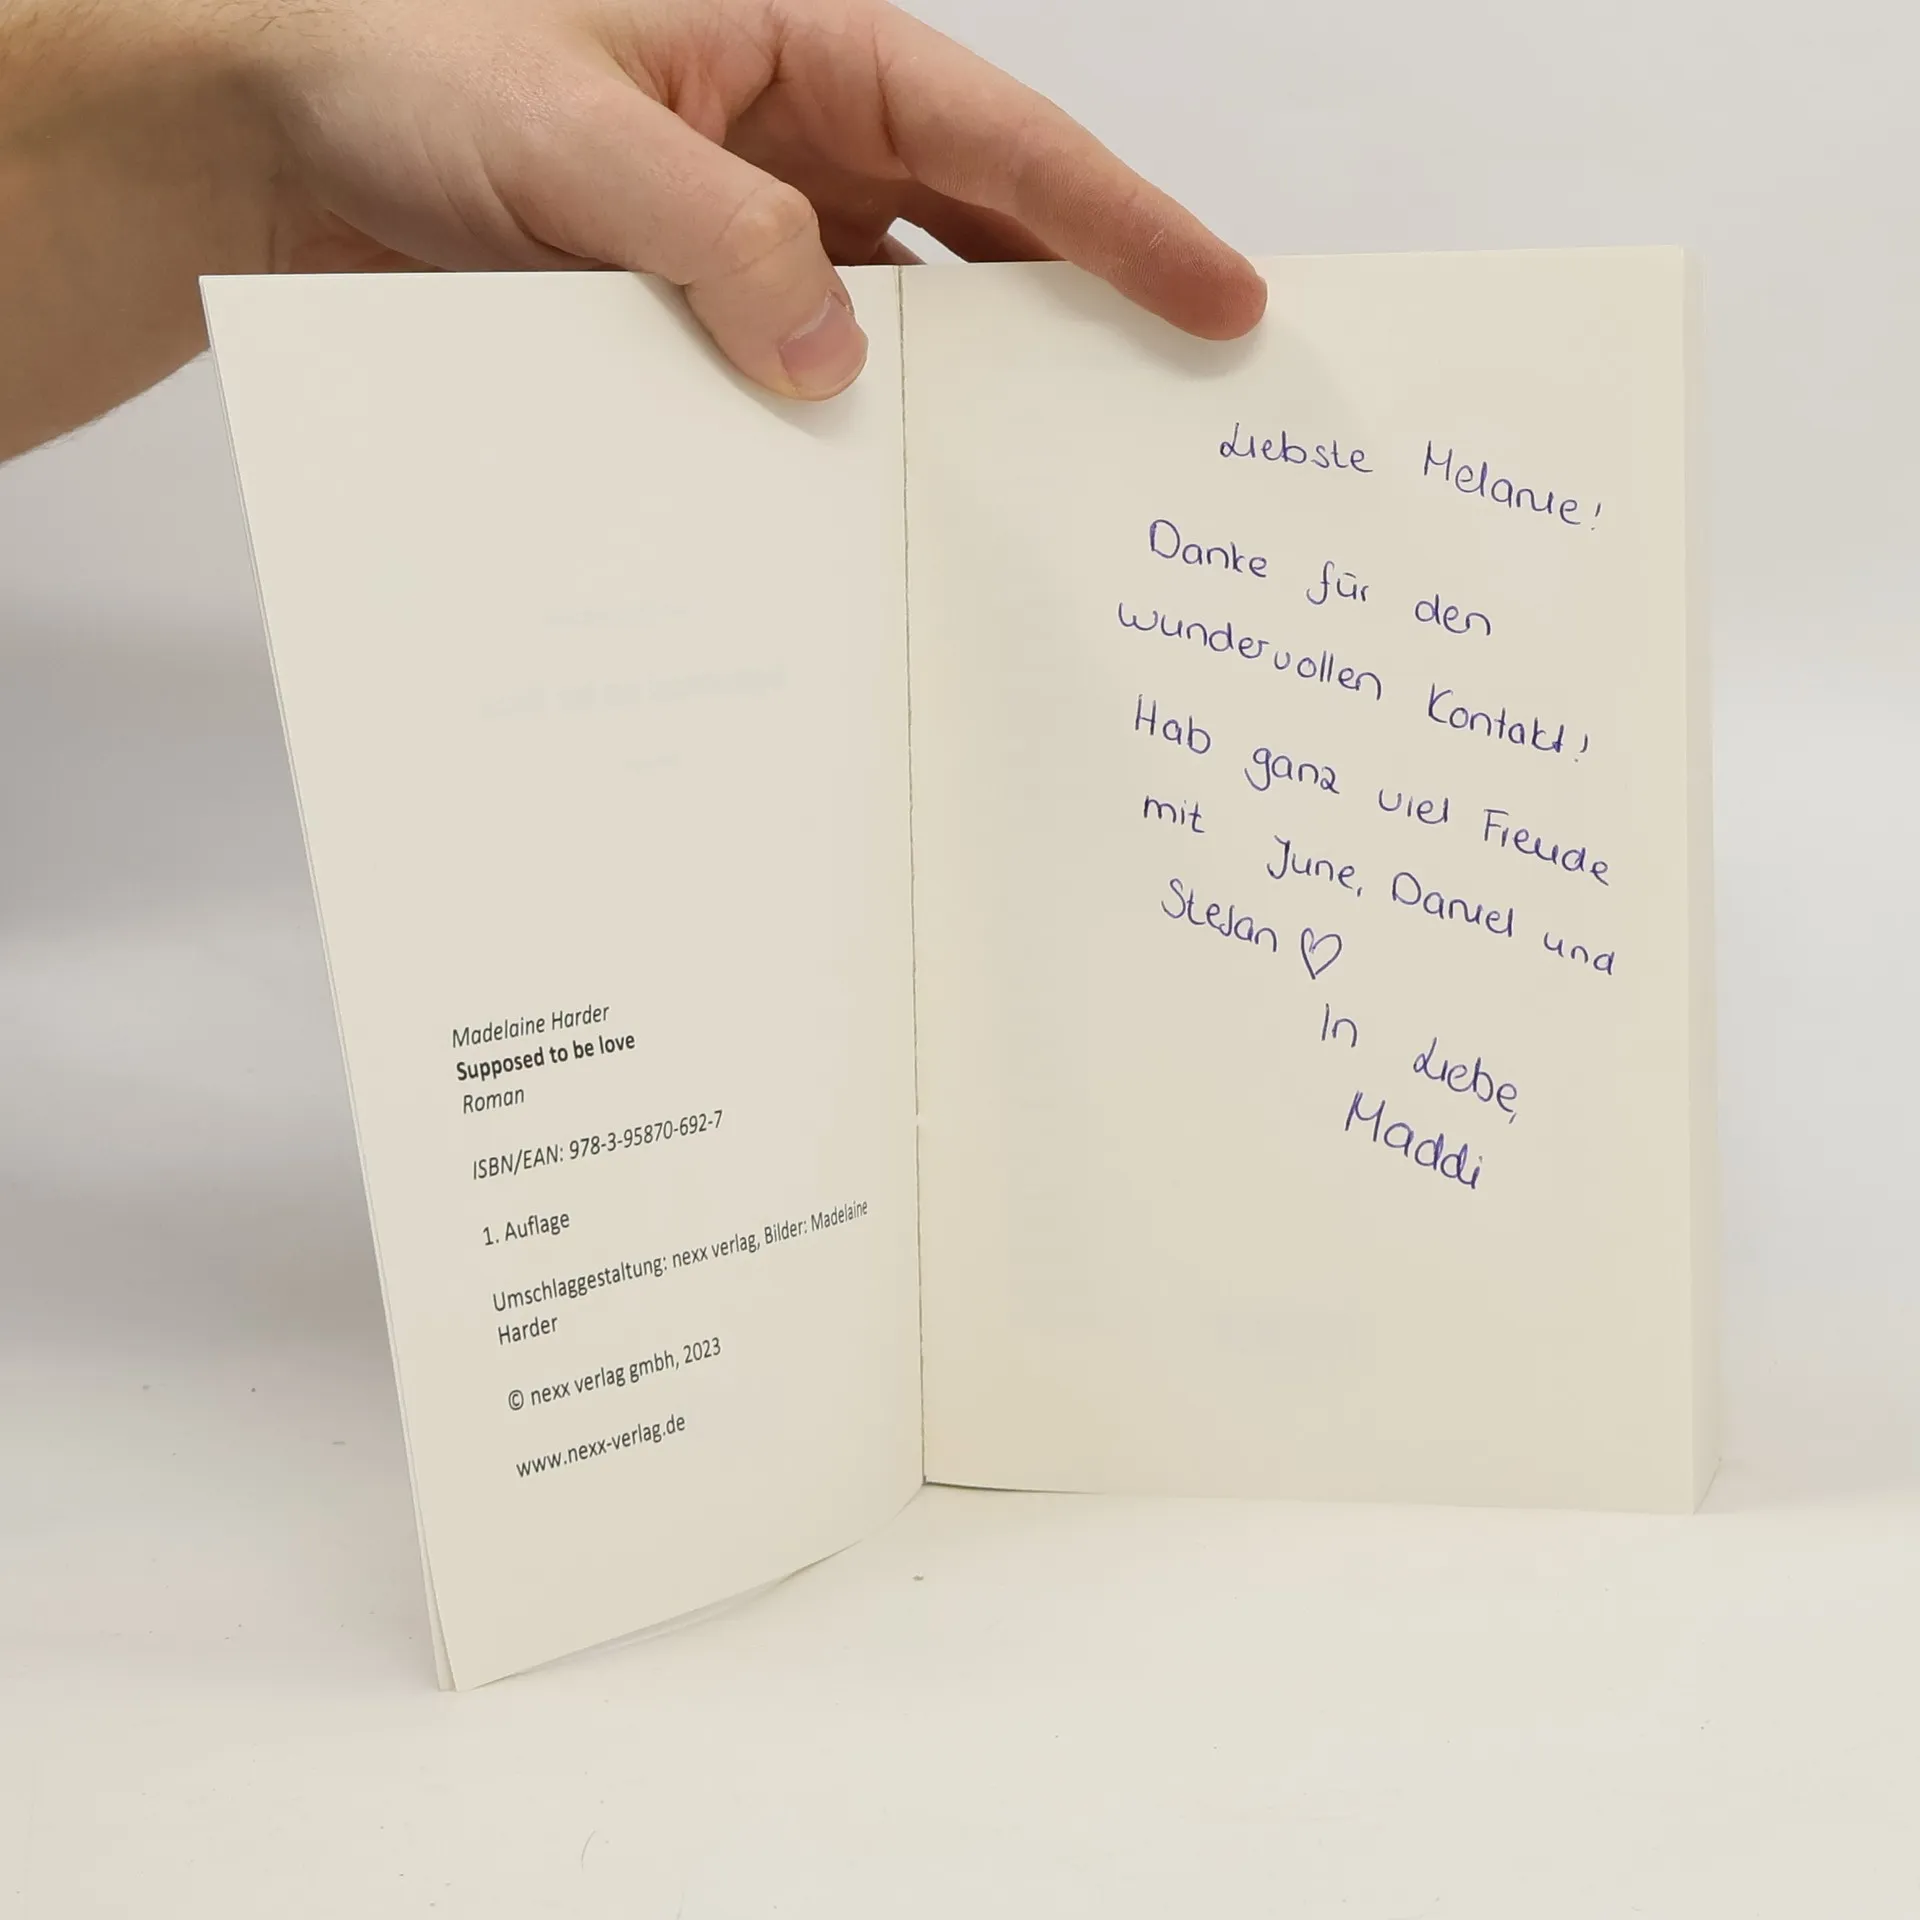 Madelaine Harder
Supposed to be love
Roman
ISBN/EAN: 978-3-95870-692-7
1. Auflage
Umschlaggestaltung: nexx verlag, Bilder: Madelaine
Harder
© nexx verlag gmbh, 2023
www.nexx-verlag.de
Liebste Melanie!
Danke für den
wundervollen Kontakt!
Hab ganz viel Freude
mit June, Daniel und
Stefan ♡
In Liebe,
Maddi